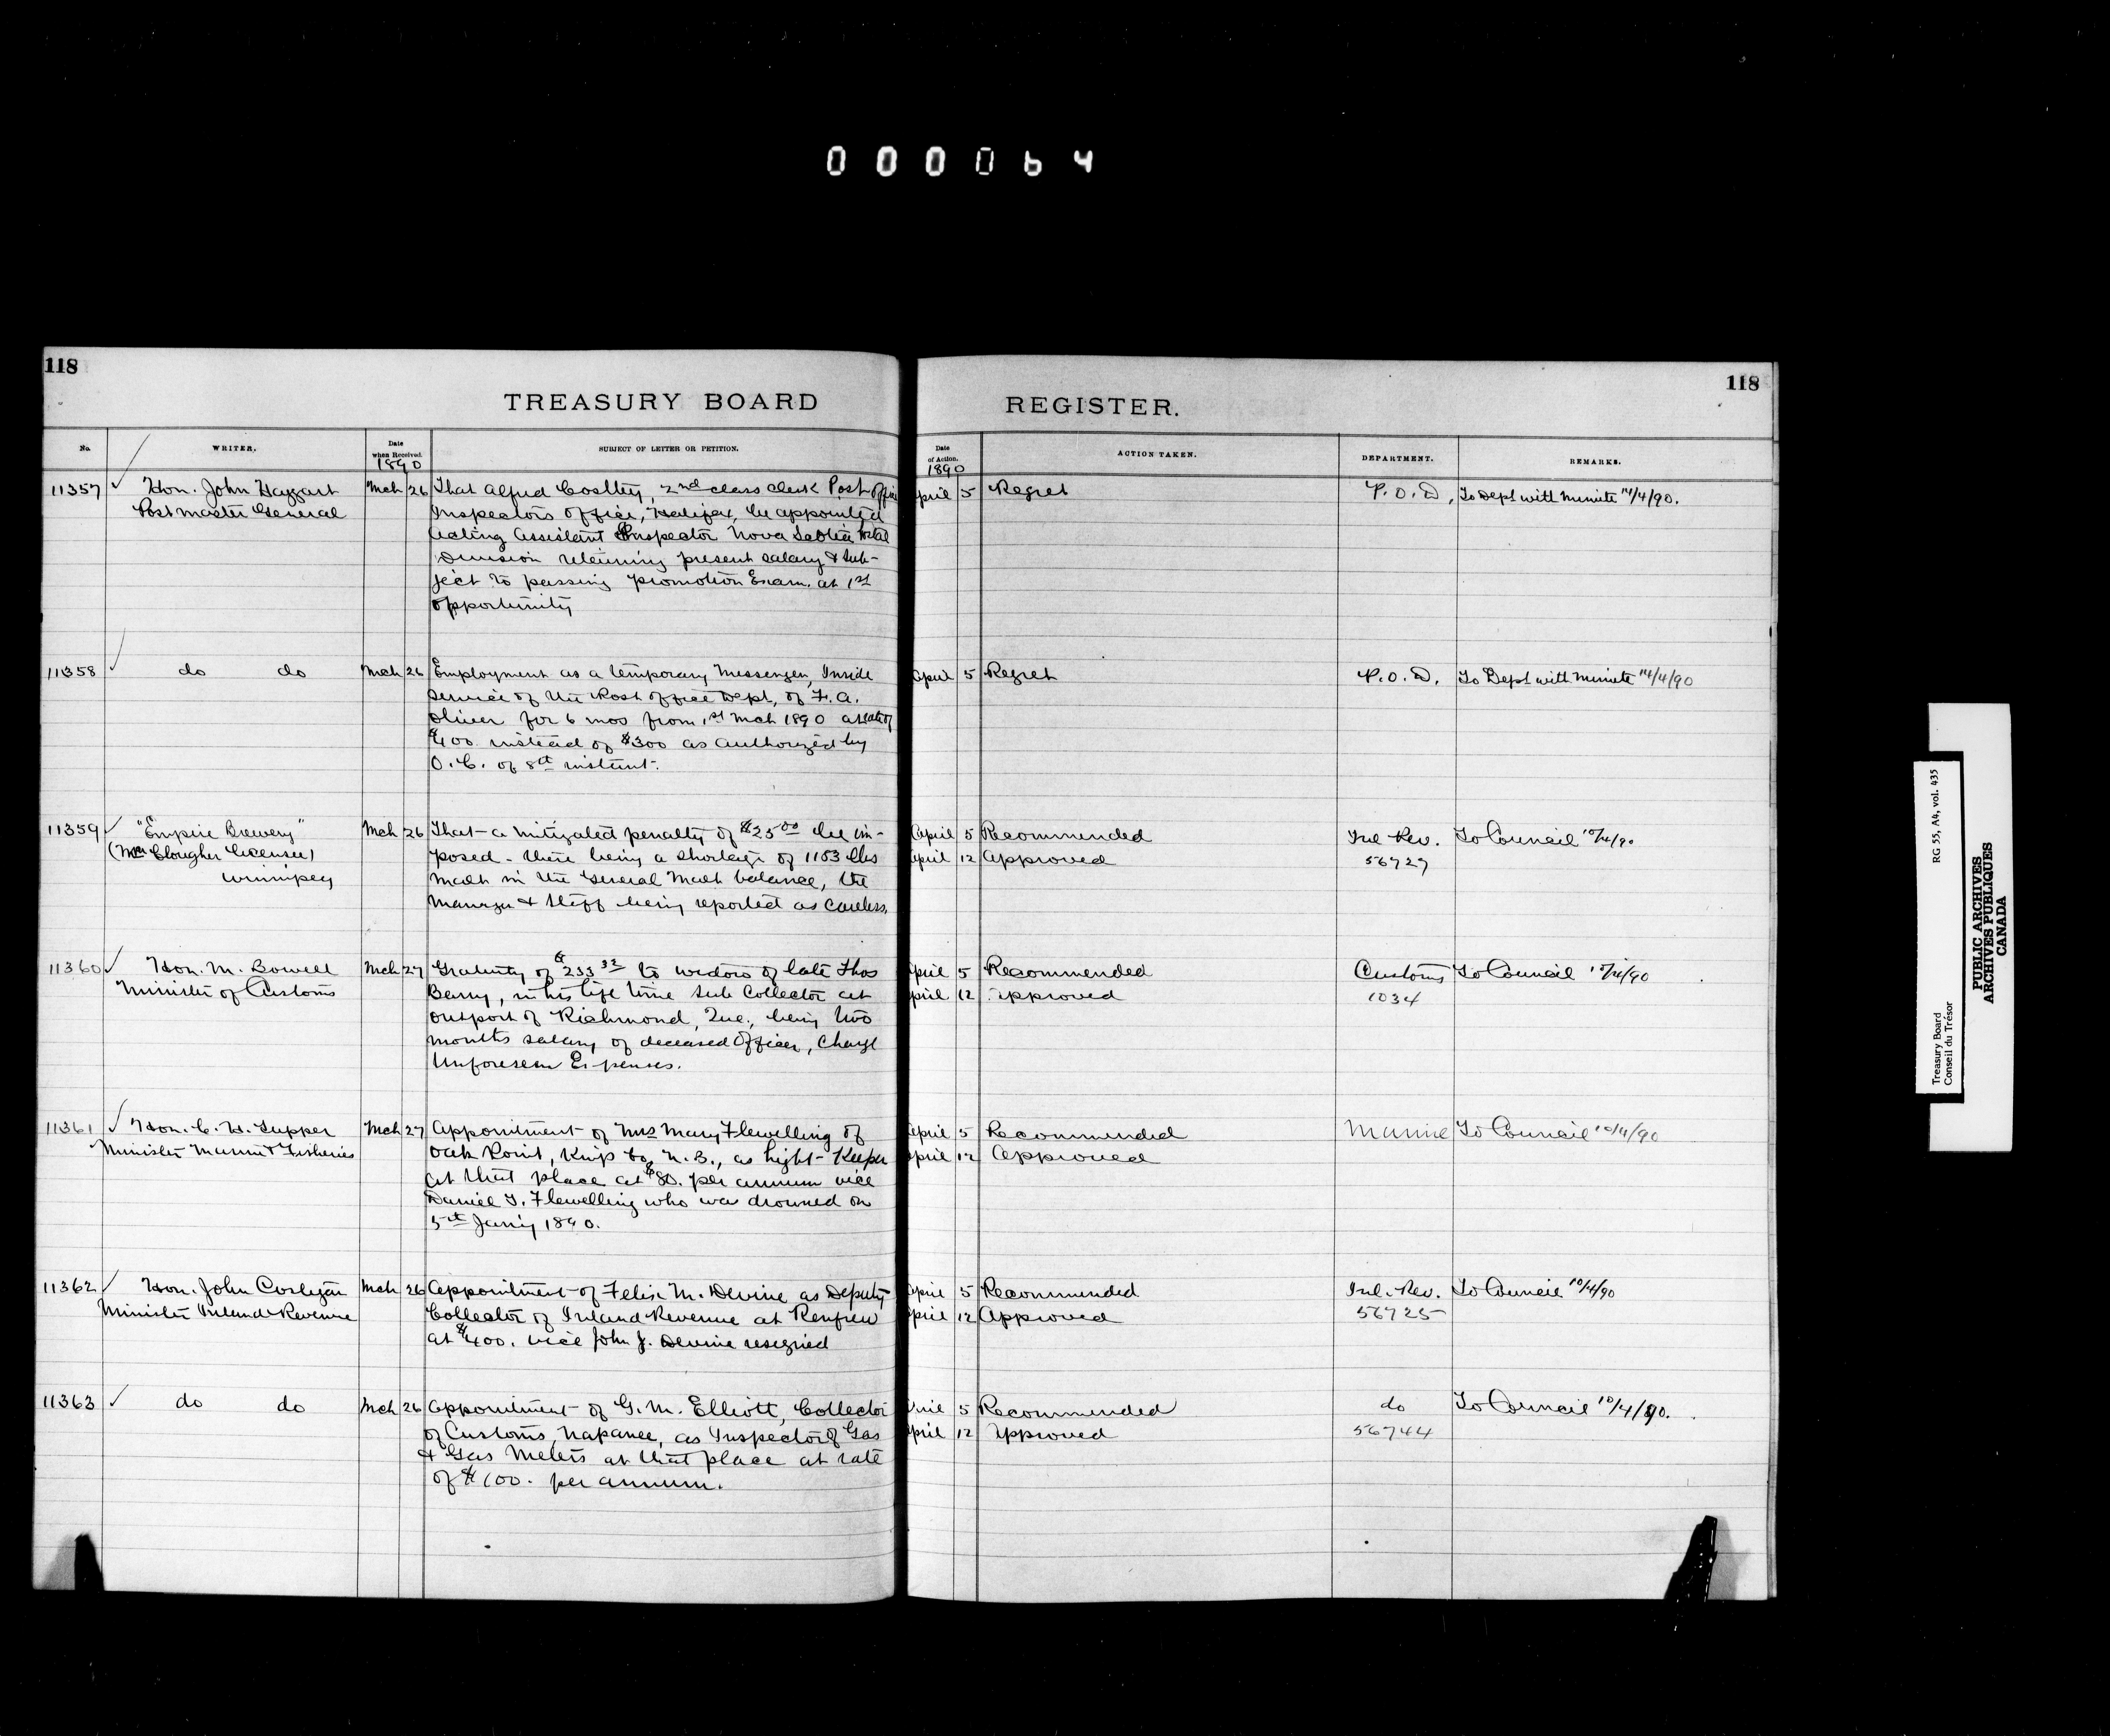 000064
118
118
TREASURY BOARD
REGISTER.
No.
WRITER.
Date
when Received.
1890
SUBJECT OF LETTER OR PETITION.
Date
of Action.
1890
ACTION TAKEN.
DEPARTMENT.
REMARKS.
11357 Hon. John Haggart Mch 26 That Alfred 2nd class clerk Post Office April 5 Regret P.O.D. To Dept with minute 14/4/90.
Postmaster General Inspectors Office, Halifax, be appointed
Acting Assistant Inspector Nova Scotia Postal
Division retaining present salary & sub-
ject to passing promotion Exam. at 1st
opportunity
11358 do do Mch 26 Employment as a temporary Messenger, Inside April 5 Regret P.O.D. To Dept with minute 14/4/90
Service of the Post Office Dept, of F. A.
Oliver for 6 mos from 1st Mch 1890 at rate of
$400. instead of $300 as authorized by
O.C. of 8th instant.
11359 "Empire Brewery" Mch 26 That a mitigated penalty of $25 00 be im- April 5 Recommended Inl Rev. To Council 10/4/90
Clougher Licensee) posed - there being a shortage of 1153 lbs April 12 Approved 56727
Winnipeg malt in the General Malt balance, the
Manager & Staff being reported as careless.
11360 Hon. M. Bowell Mch 27 Gratuity of $233 33 to widow of late Thos April 5 Recommended Customs To Council 10/4/90
Minister of Customs Berry, in his life time Sub Collector at April 12 Approved 1034
outport of Richmond, Que., being two
months salary of deceased Officer, Charge
Unforeseen Expenses.
11361 Hon. C. H. Tupper Mch 27 Appointment of Mrs Mary Flewelling of April 5 Recommended Marine To Council 10/4/90
Minister Marine & Fisheries Oak Point, Kings Co, N.B., as Light-Keeper April 12 Approved
at that place at $80. per annum vice
Daniel T. Flewelling who was drowned on
5th Jan'y 1890.
11362 Hon. John Costigan Mch 26 Appointment of Felix M. Devine as Deputy April 5 Recommended Inl. Rev. To Council 10/4/90
Minister Inland Revenue Collector of Inland Revenue at Renfrew April 12 Approved 56725
at $400. vice John J. Devine resigned
11363 do do Mch 26 Appointment of G. M. Elliott, Collector April 5 Recommended do To Council 10/4/90.
of Customs, Napanee, as Inspector of Gas April 12 Approved 56744
& Gas Meters at that place at rate
of $100. per annum.
Treasury Board RG 55, A4, vol. 435
Conseil du Trésor
PUBLIC ARCHIVES
ARCHIVES PUBLIQUES
CANADA